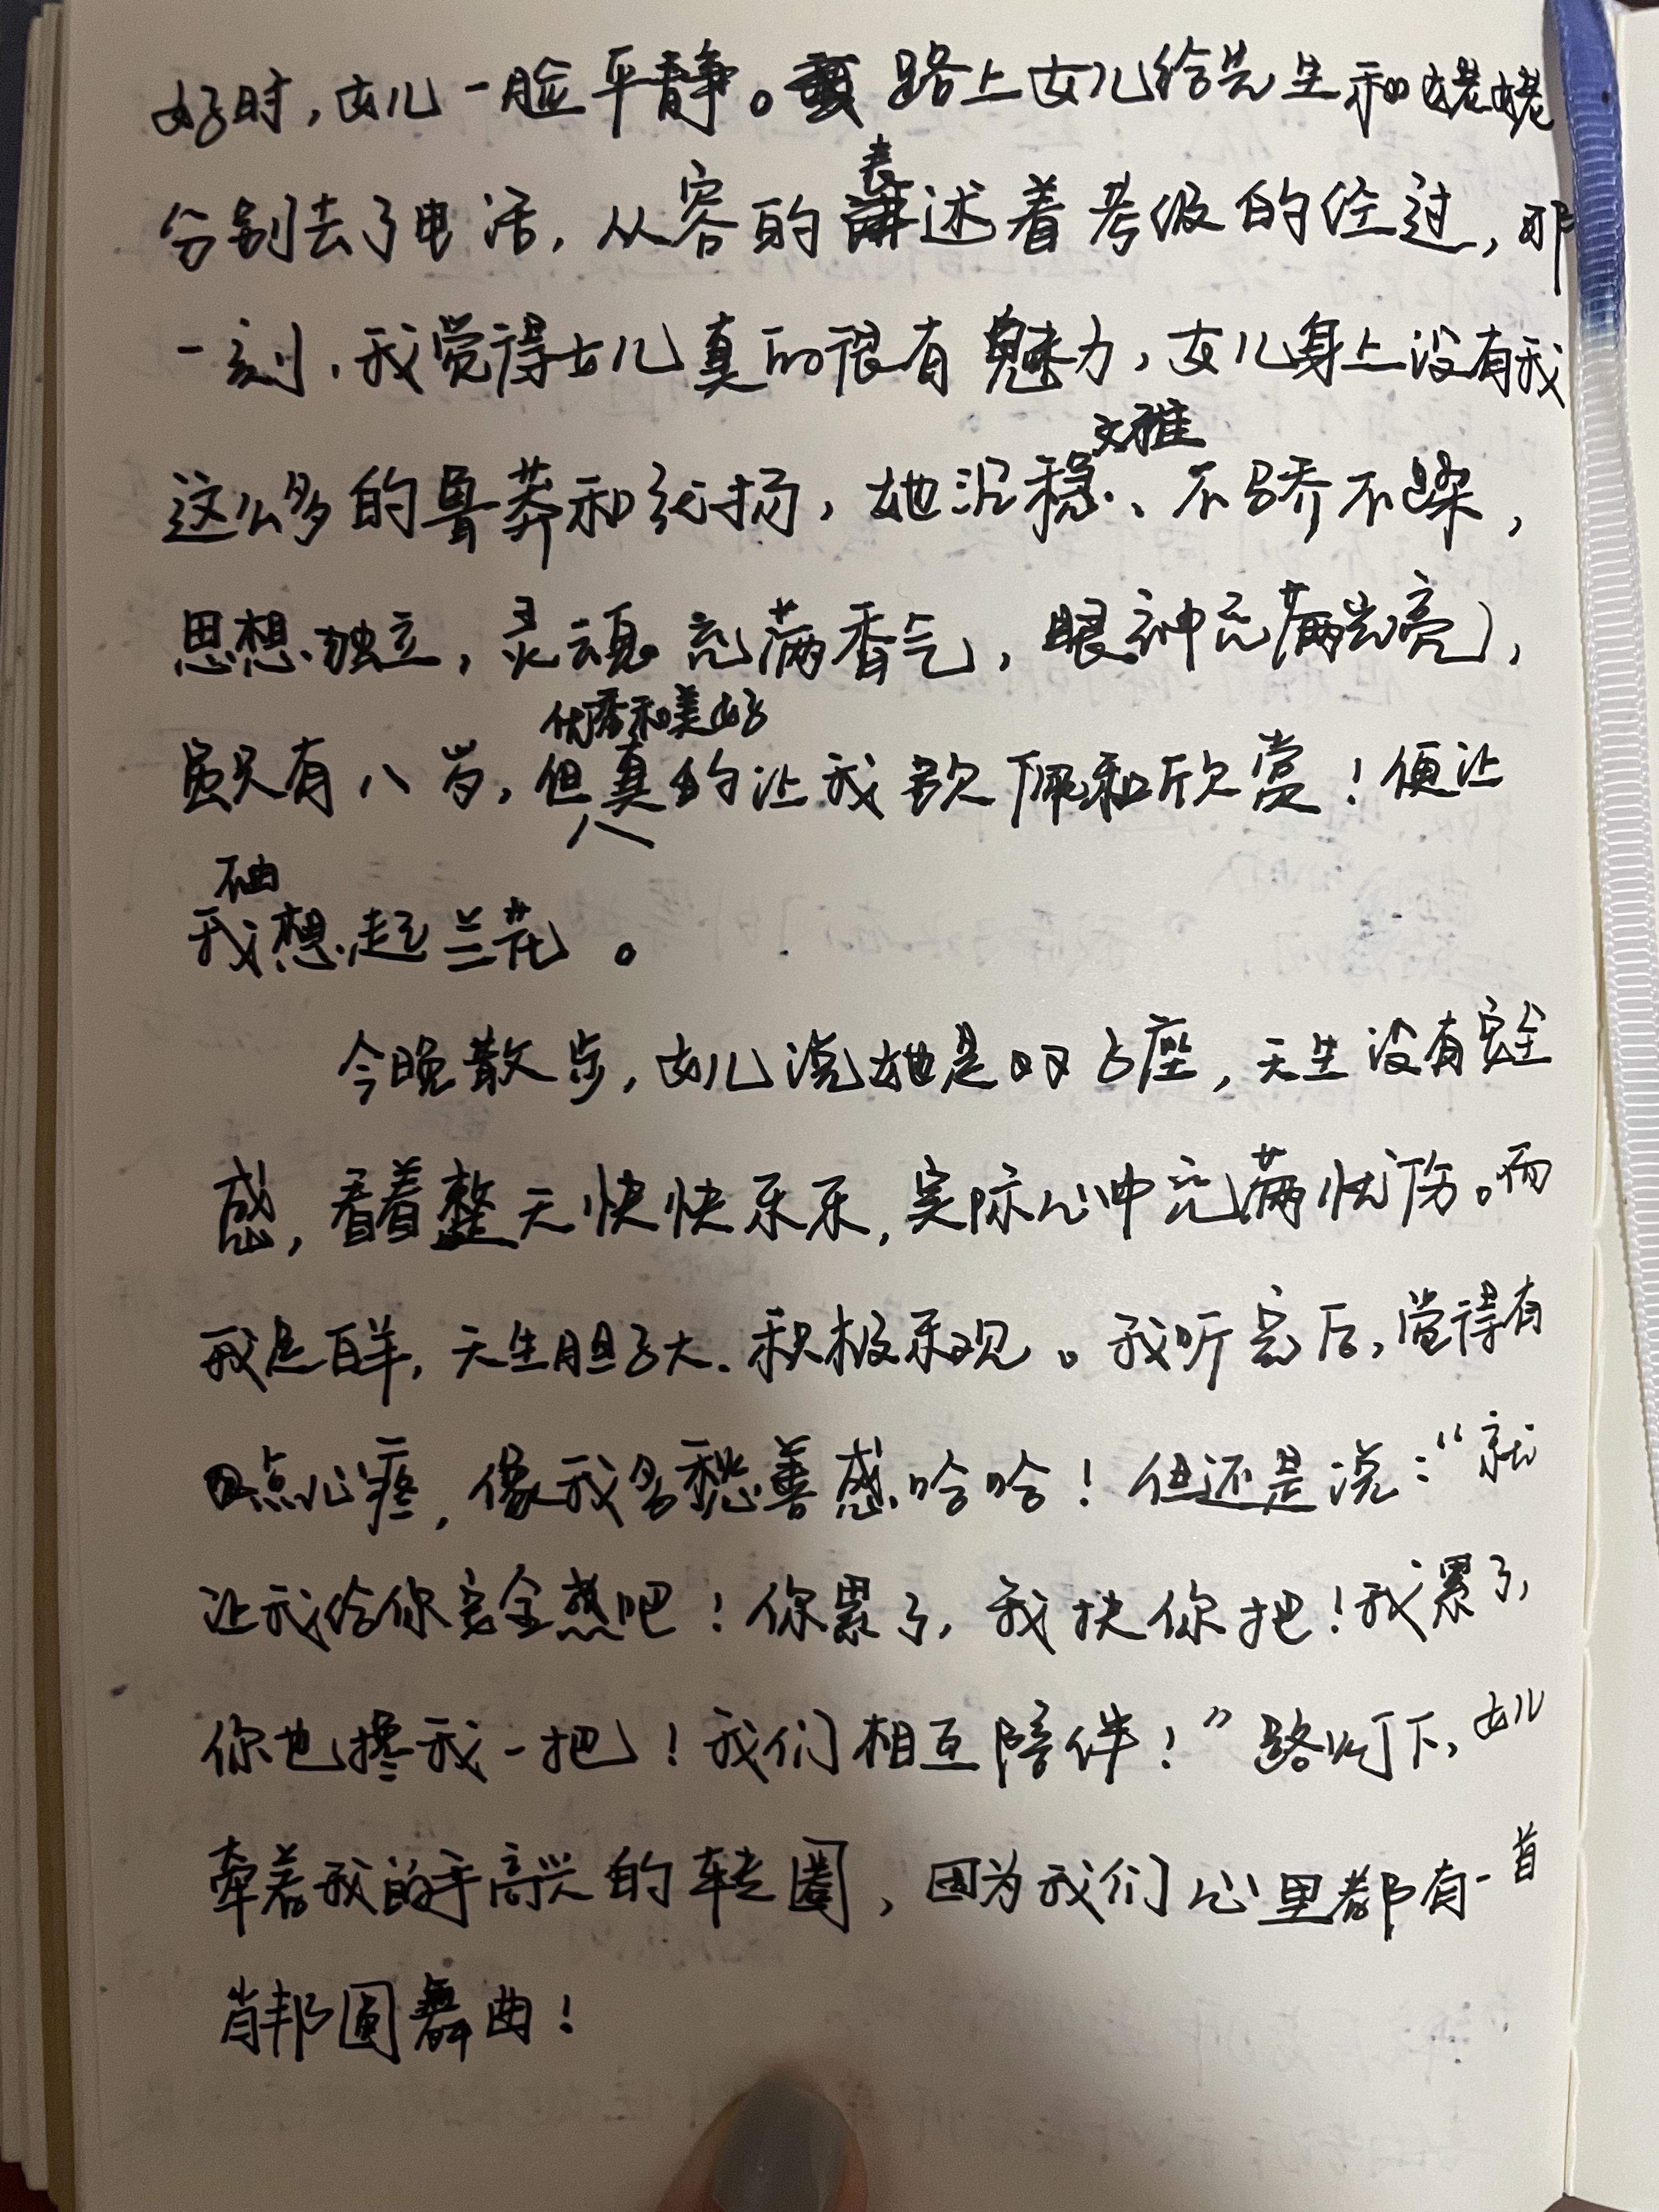 好时，女儿一脸平静。路上女儿给先生和姥姥
分别去了电话，从容的表述着考级的经过，那
一刻，我觉得女儿真的很有魅力，女儿身上没有我
这么多的鲁莽和纷扬，她沉稳、文雅、不骄不躁，
思想独立，灵魂充满香气，眼神充满光亮，
虽只有八岁，但优秀和美好真的让我钦佩和欣赏！便让
我不由想起兰花。
今晚散步，女儿说她是双子座，天生没有安全
感，看着整天快快乐乐，实际心中充满忧伤。而
我是白羊，天生胆子大、积极乐观。我听完后，觉得有
点心疼，像我多愁善感哈哈！但还是说：“就
让我给你安全感吧！你累了，我扶你把！我累了，
你也搀我一把！我们相互陪伴！”路灯下，女儿
牵着我的手高兴的转圈，因为我们心里都有一首
肖邦圆舞曲！